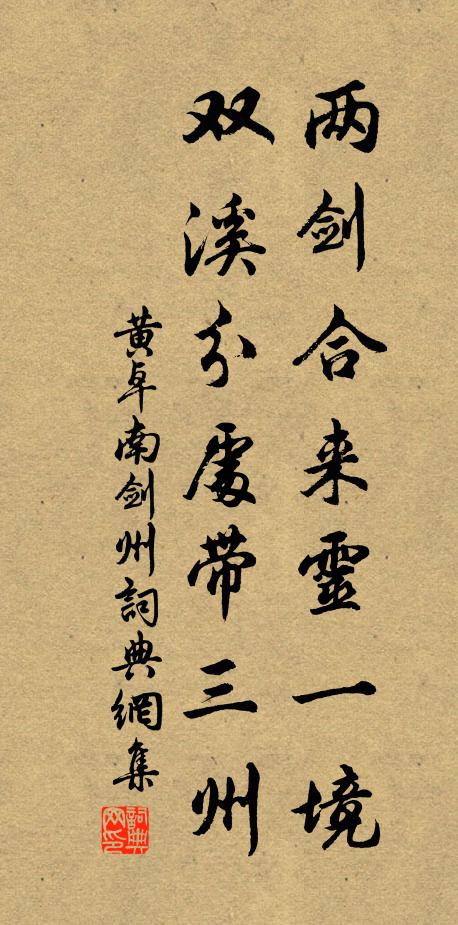 两剑合来靈一境
双溪分處带三州
黄卓南剑州詞典網集
詞典网印